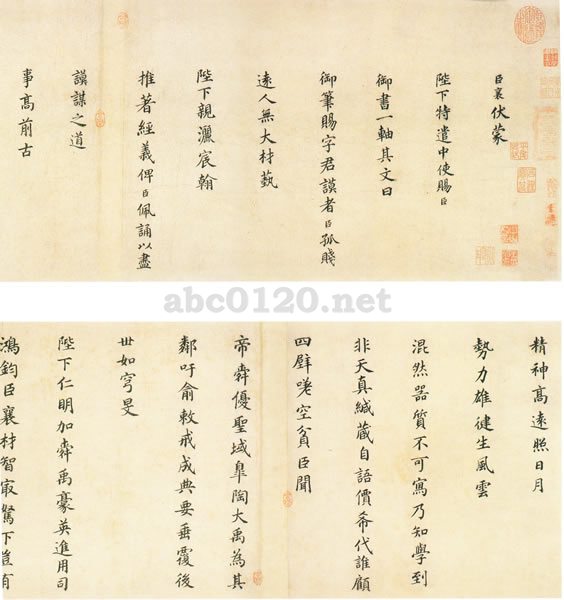 臣襄伏蒙
陛下特遣中使賜臣
御書一軸其文曰
御筆賜字君謨者臣孤賤
遠人無大材藝
陛下親灑宸翰
推著經義俾臣佩誦以盡
謨謀之道
事高前古
abc0120.net
精神高遠照日月
勢力雄健生風雲
混然器質不可寫乃知學到
非天真緘藏自語價希代誰顧
四壁嗟空貧臣聞
帝舜優聖域皐陶大禹為其
鄰吁俞敕戒成典要垂覆後
世如穹旻
陛下仁明加舜禹豪英進用司
鴻鈞臣襄材智最駑下豈有